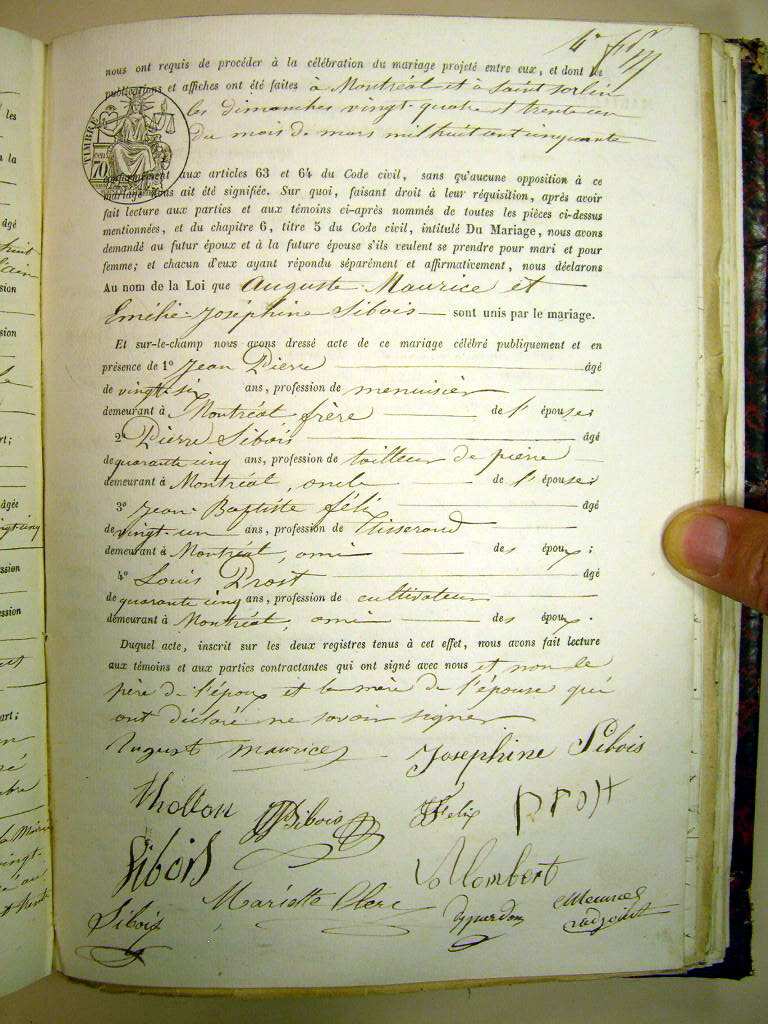 nous ont requis de procéder à la célébration du mariage projeté entre eux, et dont les
publications et affiches ont été faites à Montréal et à Saint Sorlin
les dimanches vingt-quatre et trente un
du mois de mars mil huit cent cinquante
TIMBRE
70
conformément aux articles 63 et 64 du Code civil, sans qu'aucune opposition à ce
mariage nous ait été signifiée. Sur quoi, faisant droit à leur réquisition, après avoir
fait lecture aux parties et aux témoins ci-après nommés de toutes les pièces ci-dessus
mentionnées, et du chapitre 6, titre 5 du Code civil, intitulé Du Mariage, nous avons
demandé au futur époux et à la future épouse s'ils veulent se prendre pour mari et pour
femme; et chacun d'eux ayant répondu séparément et affirmativement, nous déclarons
Au nom de la Loi que Auguste Maurice et
Emilie Joséphine Sibois sont unis par le mariage.
Et sur-le-champ nous avons dressé acte de ce mariage célébré publiquement et en
présence de 1° Jean Pierre âgé
de vingt-six ans, profession de menuisier
demeurant à Montréal frère de l'épouse;
2° Pierre Sibois âgé
de quarante cinq ans, profession de tailleur de pierre
demeurant à Montréal, oncle de l'épouse;
3° Jean-Baptiste félix âgé
de vingt-un ans, profession de tisserand
demeurant à Montréal, ami des époux;
4° Louis Prost âgé
de quarante cinq ans, profession de cultivateur
demeurant à Montréal, ami des époux.
Duquel acte, inscrit sur les deux registres tenus à cet effet, nous avons fait lecture
aux témoins et aux parties contractantes qui ont signé avec nous et non le
père de l'époux et la mère de l'épouse qui
ont déclaré ne savoir signer
August maurice Josephine Sibois
tholton Sibois Felix Prost
Sibois Alombert
Mariette Clerc
Sibois adjoint